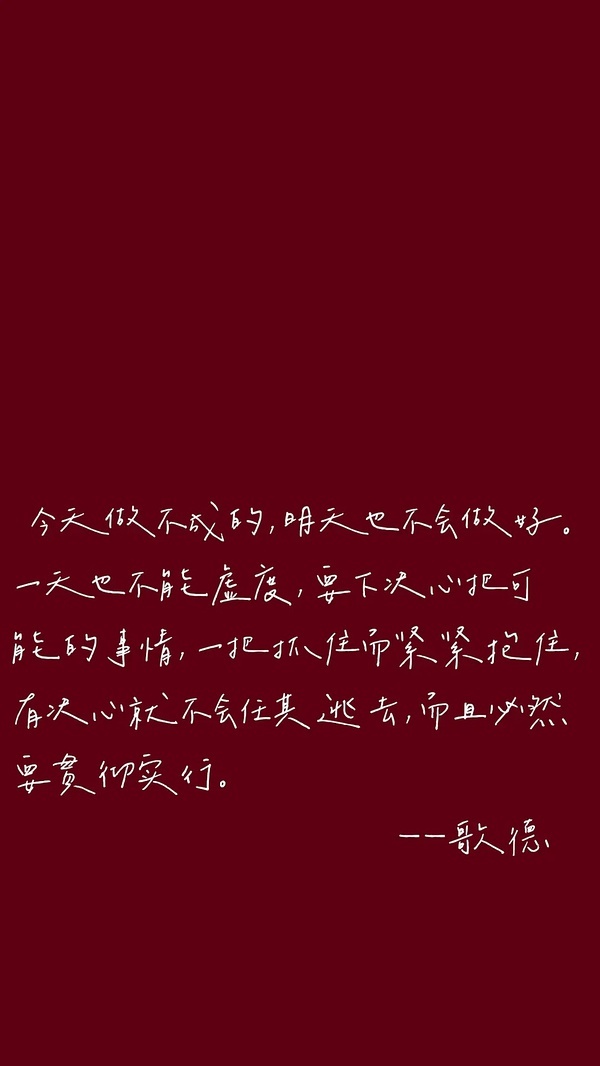 今天做不成的,明天也不会做好。
一天也不能虚度,要下决心把可
能的事情,一把抓住而紧紧抱住,
有决心就不会任其逃去,而且必然
要贯彻实行。
——歌德